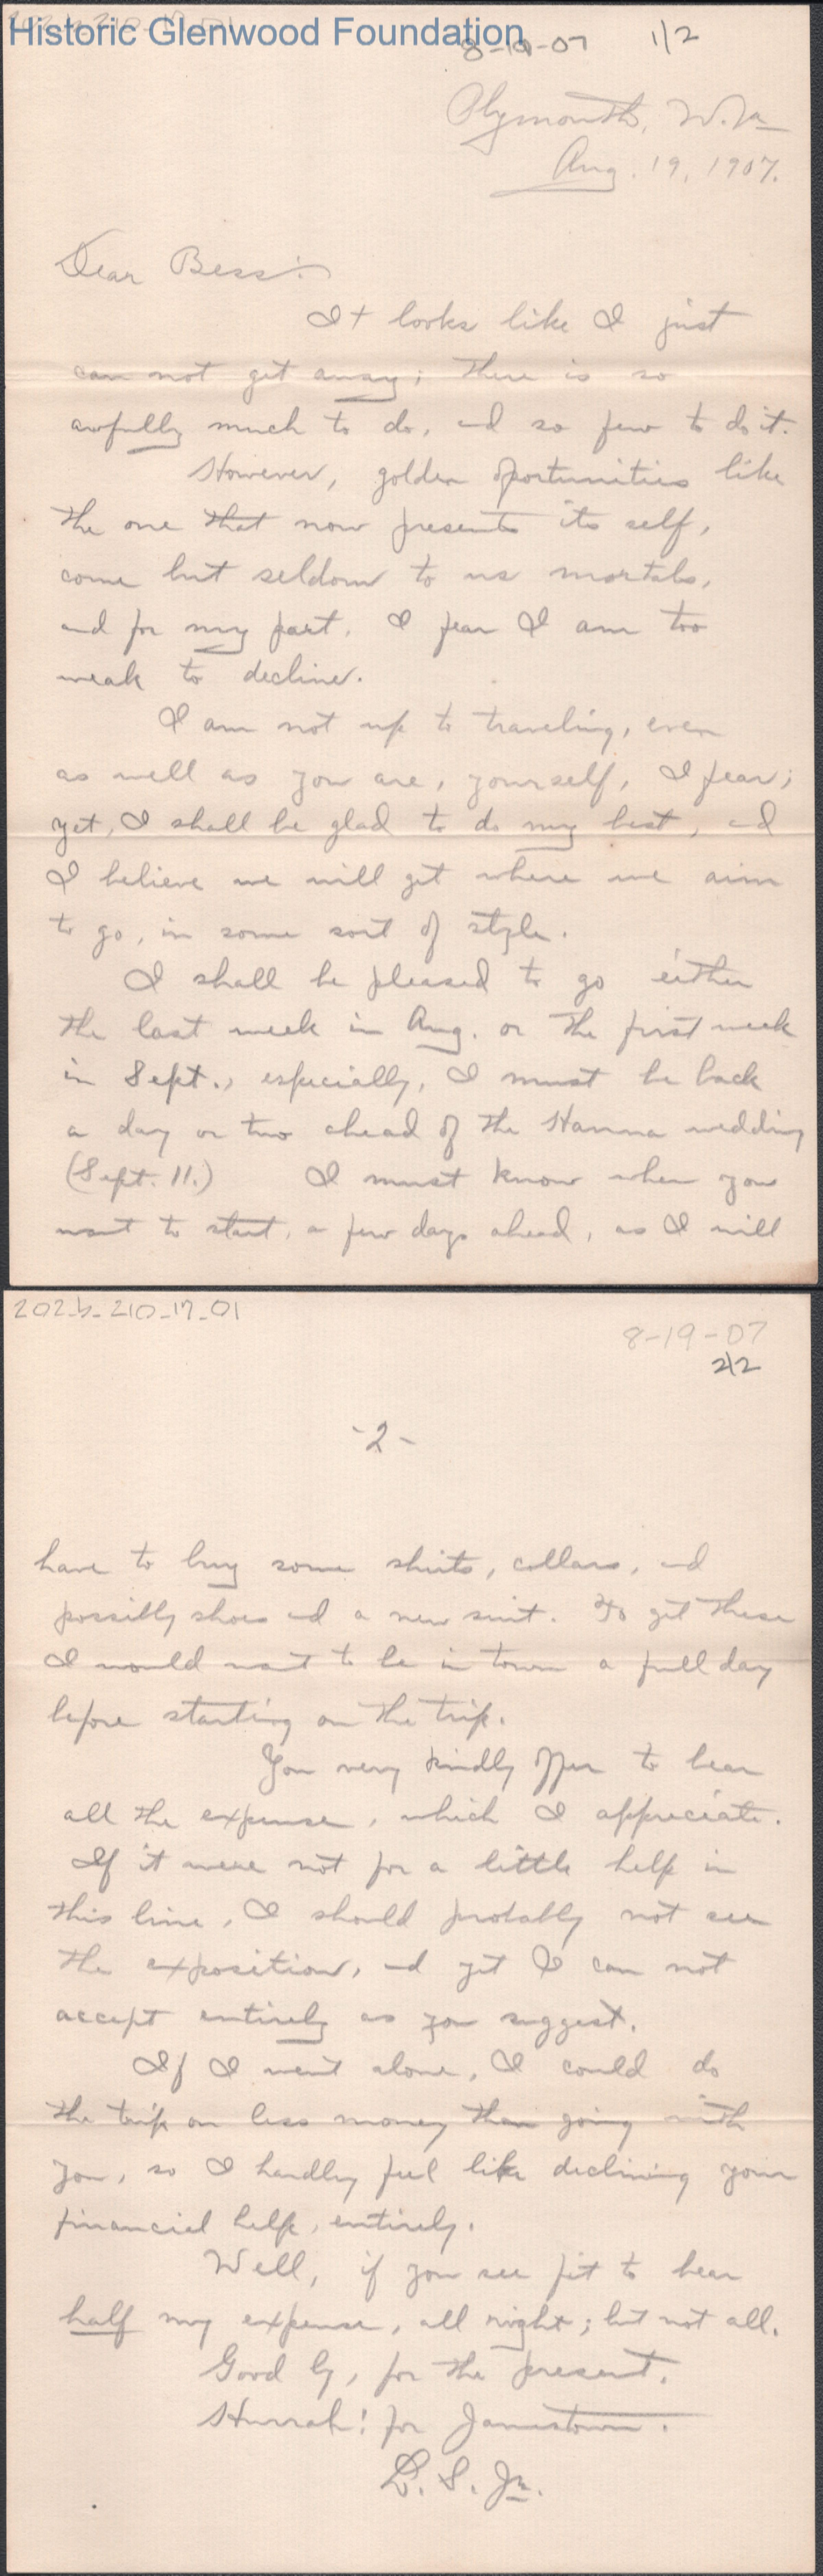 202-b-210-17-01
Historic Glenwood Foundation
8-19-07 1/2
Plymouth, W.Va
Aug. 19, 1907.
Dear Bess:
It looks like I just
can not get away; there is so
awfully much to do, and so few to do it.
However, golden oportunities like
the one that now presents its self,
come but seldom to us mortals,
and for my part, I fear I am too
weak to decline.
I am not up to traveling, even
as well as you are, yourself, I fear;
yet, I shall be glad to do my best, and
I believe we will get where we aim
to go, in some sort of style.
I shall be pleased to go either
the last week in Aug. or the first week
in Sept., especially, I must be back
a day or two ahead of the Hanna wedding
(Sept. 11.) I must know when you
want to start, a few days ahead, as I will
202-b-210-17-01
8-19-07
2/2
-2-
have to buy some shirts, collars, and
possibly shoes and a new suit. To get these
I would want to be in town a full day
before starting on the trip.
You very kindly offer to bear
all the expense, which I appreciate.
If it were not for a little help in
this line, I should probably not see
the exposition, and yet I can not
accept entirely as you suggest.
If I went alone, I could do
the trip on less money than going with
you, so I hardly feel like declining your
financial help, entirely.
Well, if you see fit to bear
half my expense, all right; but not all.
Good by, for the present.
Hurrah! for Jamestown.
L. S. Jr.